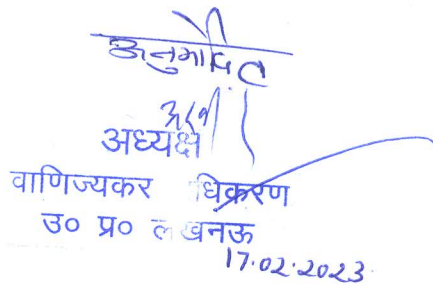 अनुमोदित
अध्यक्ष
वाणिज्यकर धिकरण
उ० प्र० लखनऊ
17.02.2023